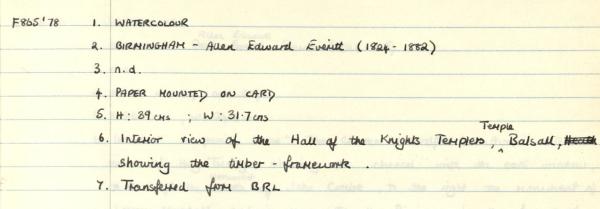 F865'78 1. WATERCOLOUR
2. BIRMINGHAM - Allen Edward Everitt (1824-1882)
3. n.d.
4. PAPER MOUNTED ON CARD
5. H: 39 cms ; W: 31.7 cms
6. Interior view of the Hall of the Knights Templers, Temple Balsall,
showing the timber-framework.
7. Transferred from BRL